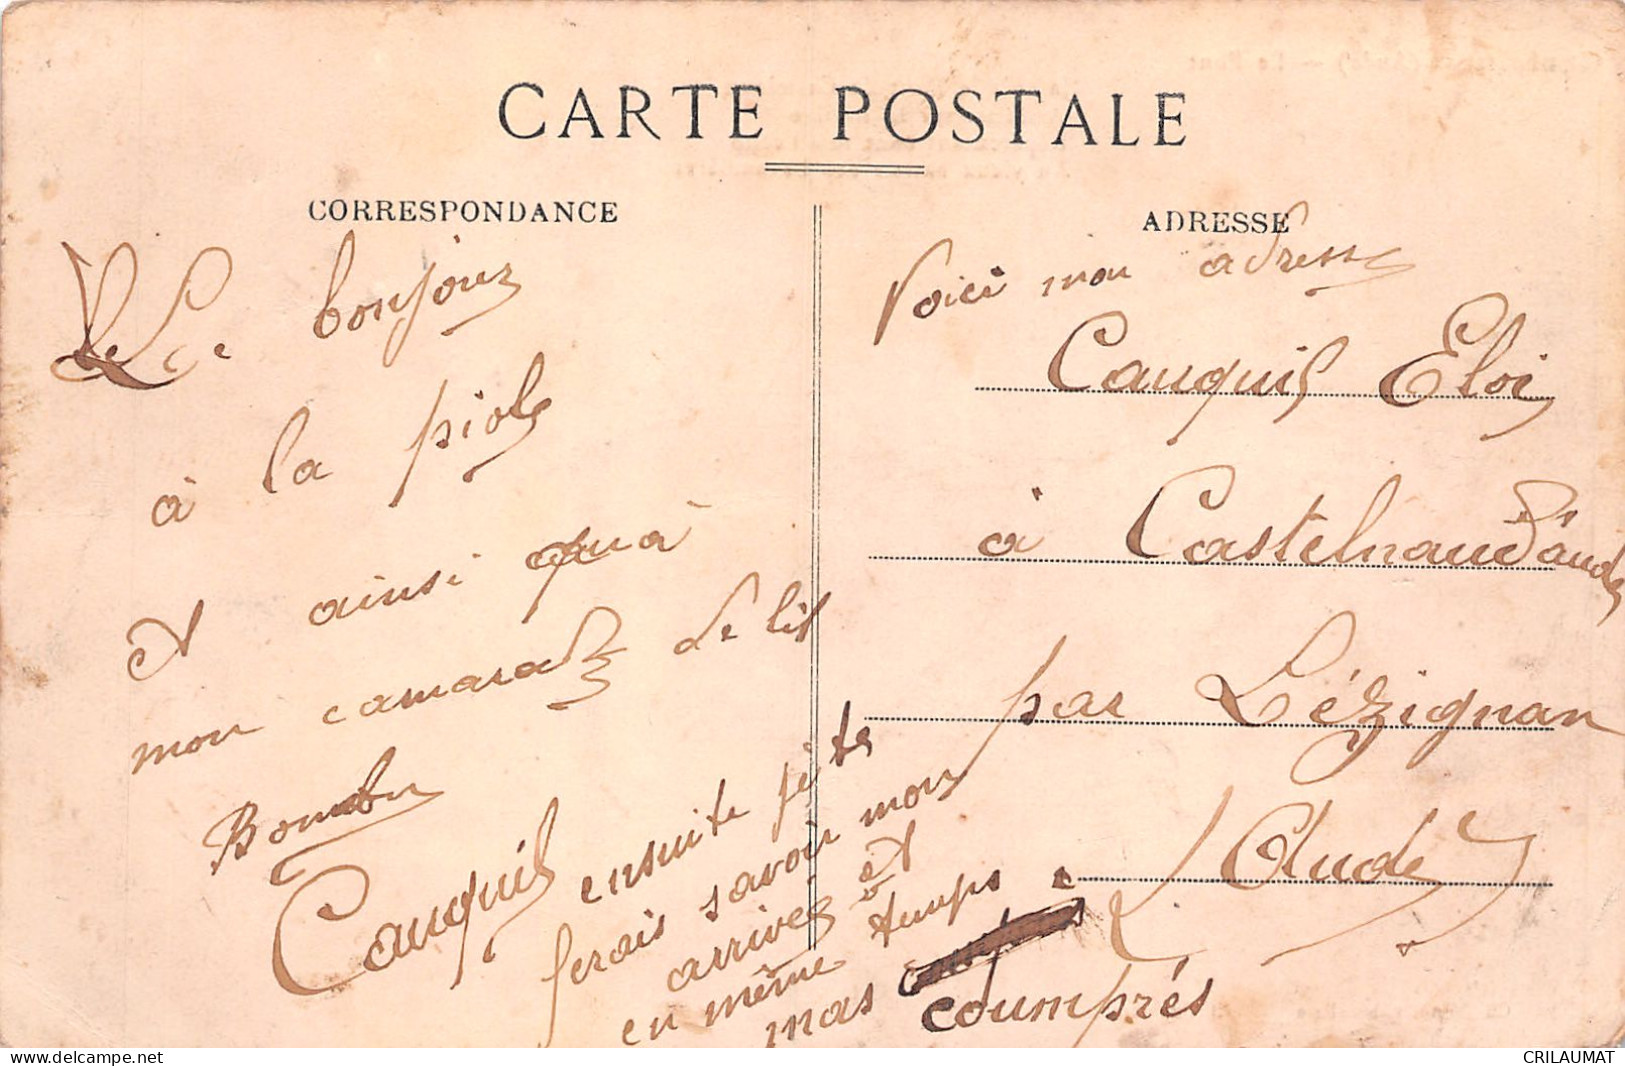 CARTE POSTALE
CORRESPONDANCE
Le bonjour
à la piole
et ainsi quà
mon camarade de lit
Cauquil
ensuite je te
ferais savoir mon
arrivée et
en même temps
mas coumprés
ADRESSE
Voici mon adresse
Cauquil Eloi
à Castelnaud'aude
par Lézignan
L'Aude
CRILAUMAT